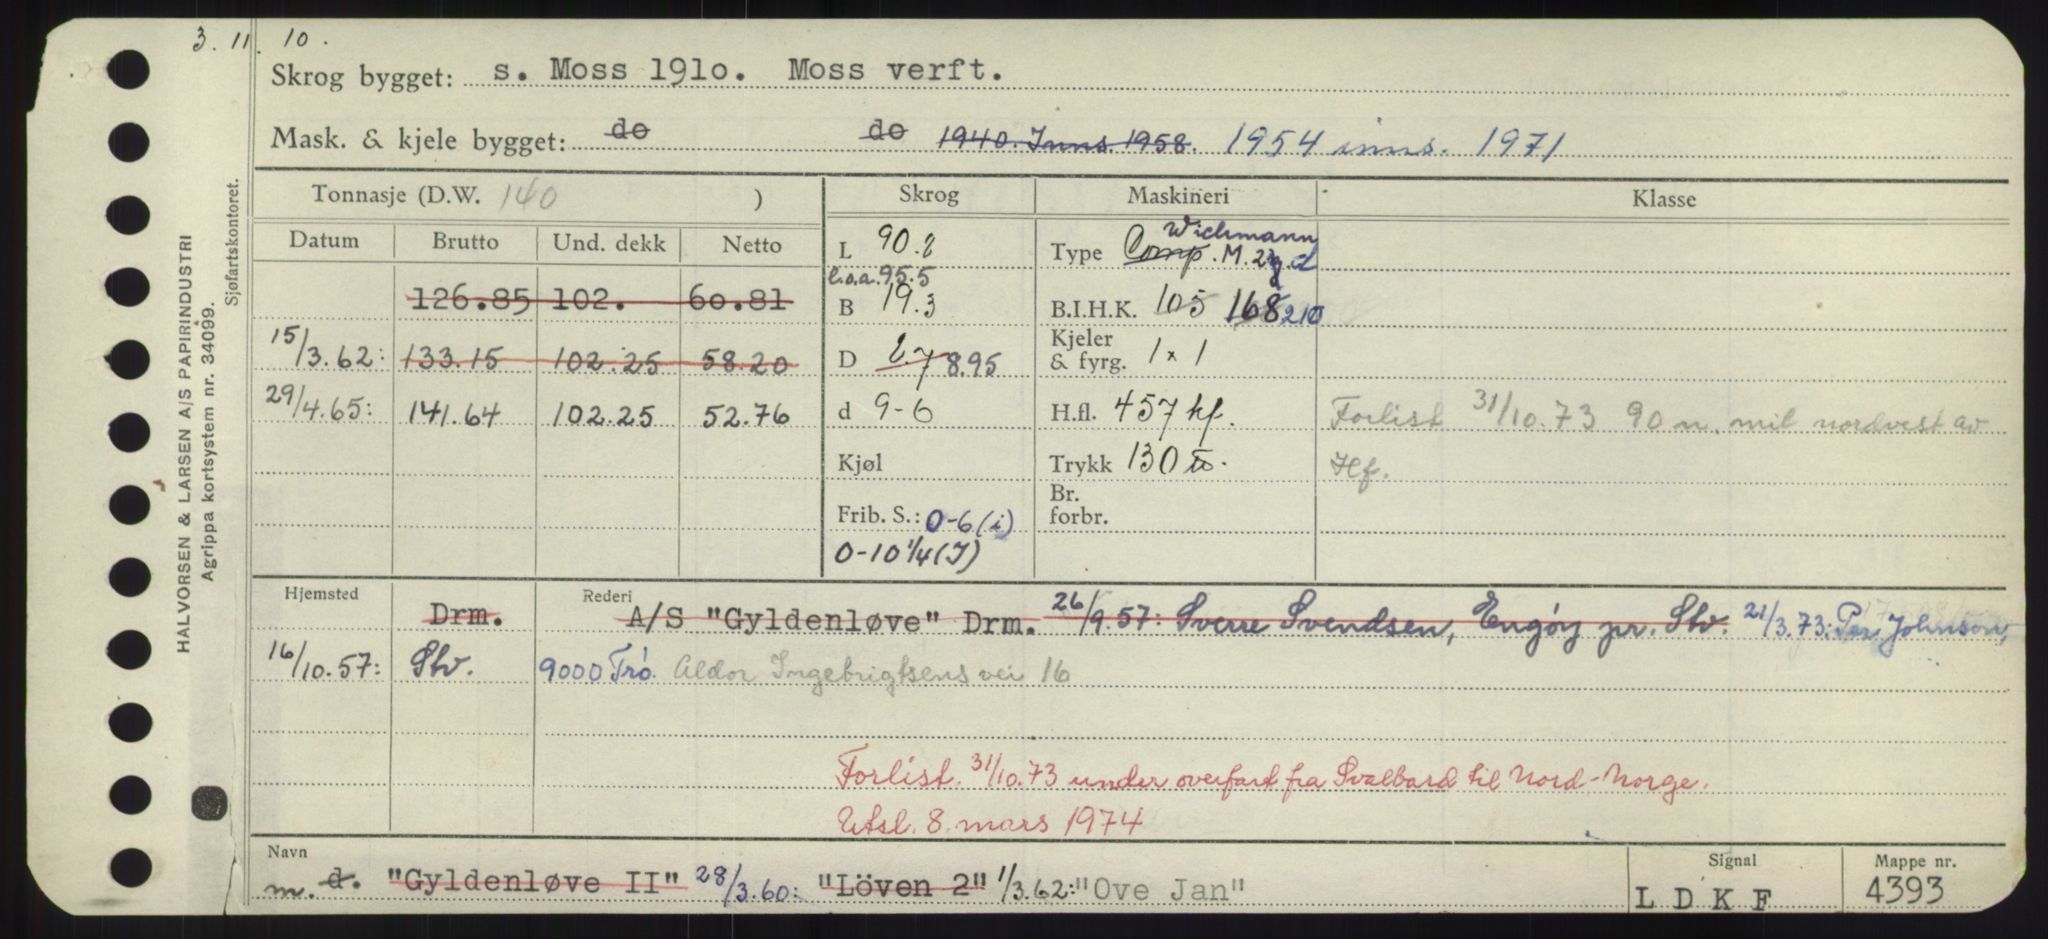 3. 11. 10.
Skrog bygget: s. Moss 1910. Moss verft.
Mask. & kjele bygget: do do 1940. Inns. 1958. 1954 inns. 1971
Tonnasje (D.W. 140 ) Skrog Maskineri Klasse
Datum Brutto Und. dekk Netto
L 90.2
Type Comp. Wichmann M. 2 d
l.o.a. 95.5
126.85 102. 60.81
B 19.3
B.I.H.K. 105 168 210
15/3.62: 133.15 102.25 58.20
D 8.95
Kjeler & fyrg. 1 x 1
29/4.65: 141.64 102.25 52.76
d 9-6
H.fl. 457 hf.
Forlist 31/10.73 90 n. mil nordvest av
Kjøl
Trykk 130 to.
Hf.
Frib. S.: 0-6 (i)
Br. forbr.
0-10 1/4 (I)
Hjemsted Rederi
Drm. A/S "Gyldenløve" Drm. 26/9.57: Sverre Svendsen, Engöy pr. Stv. 21/3.73: Per Johnson,
16/10.57: Stv. 9000 Trö. Aldor Ingebrigtsens vei 16
Forlist. 31/10.73 under overfart fra Svalbard til Nord-Norge.
Utsl. 8. mars 1974
Navn Signal Mappe nr.
m. d. "Gyldenløve II" 28/3.60: "Löven 2" 1/3.62: "Ove Jan" L D K F 4393
HALVORSEN & LARSEN A/S PAPIRINDUSTRI
Agrippa kortsystem nr. 34099.
Sjøfartskontoret.